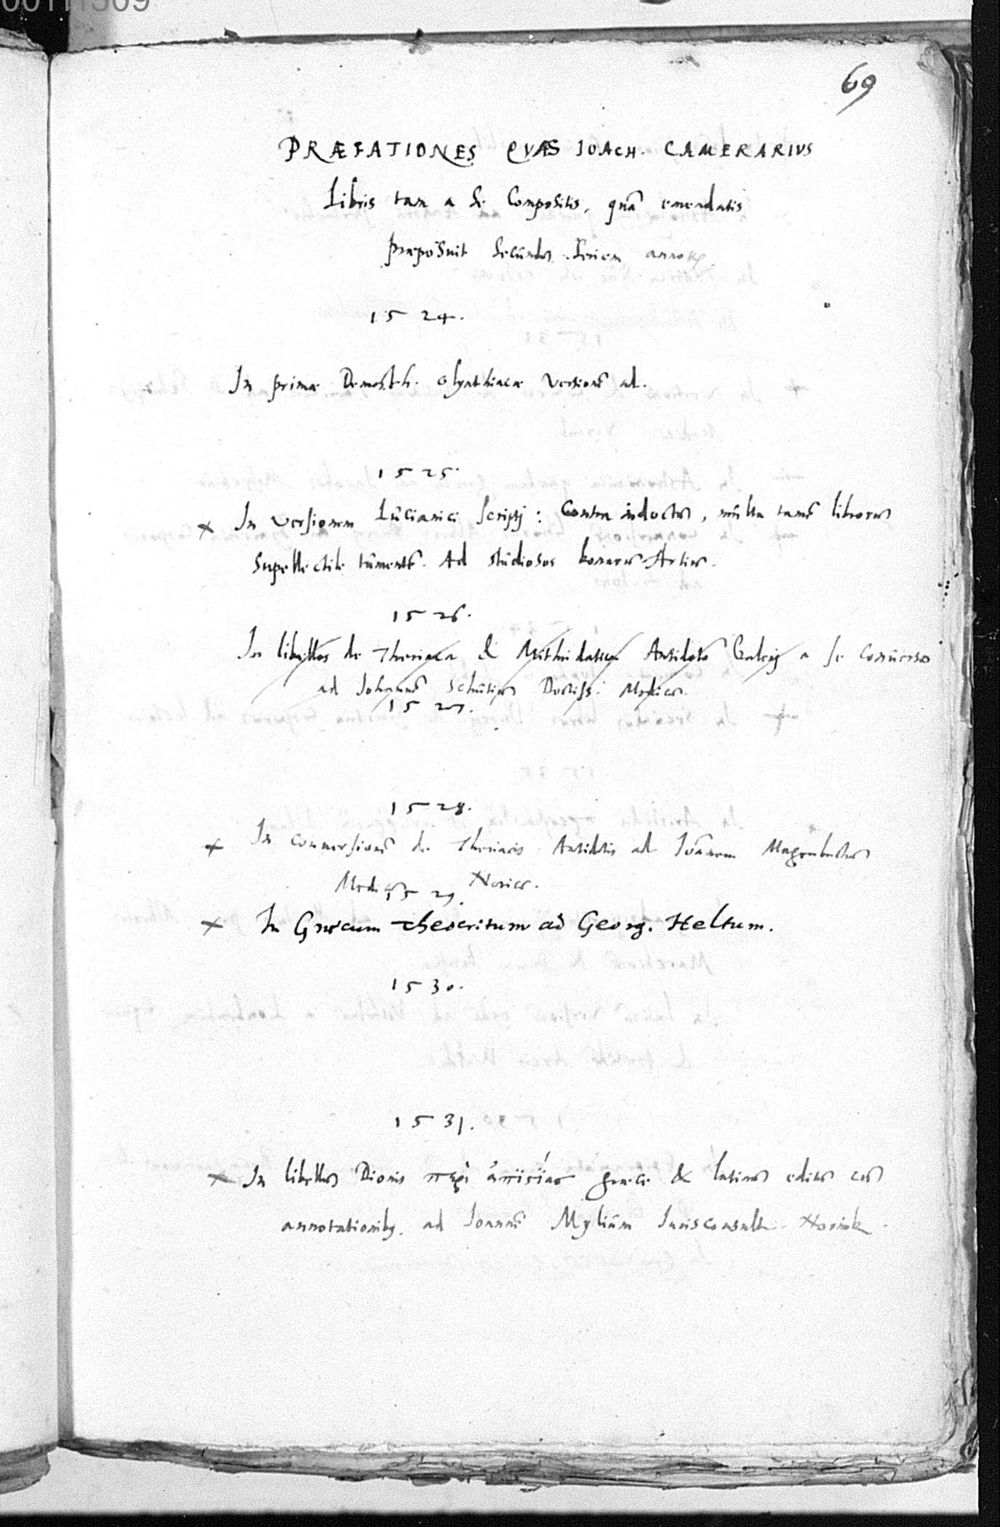 00111309
69
PRÆFATIONES QVAS IOACH. CAMERARIVS
Libris tam a se Compositis, quã emendatis
præposuit secundũ seriem annorũ.
1524.
In primæ Demosth. olynthiacæ versionẽ ad.
1525.
× In versionem Lucianici scripti: Contra indoctũ, multa tamẽ librorũ
supellectile tumentẽ. Ad studiosos bonarũ Artiũ.
1526.
In libellos de Theriaca & Mithridatica Antidoto Galeij a se conuersos
ad Johannẽ Doctiss. Medicũ.
1527.
1528.
× In conuersionẽ de Theriacis Antidotis ad Ioannem Magenbuchũ
Medicũ Noricũ.
1529.
× In Græcum Theocritum ad Georg. Heltum.
1530.
1531.
× In libellũ Dionis περὶ ἀπιστίας græce & latine editũ cũ
annotationibꝰ. ad Ioannẽ Mylium Jurisconsultũ